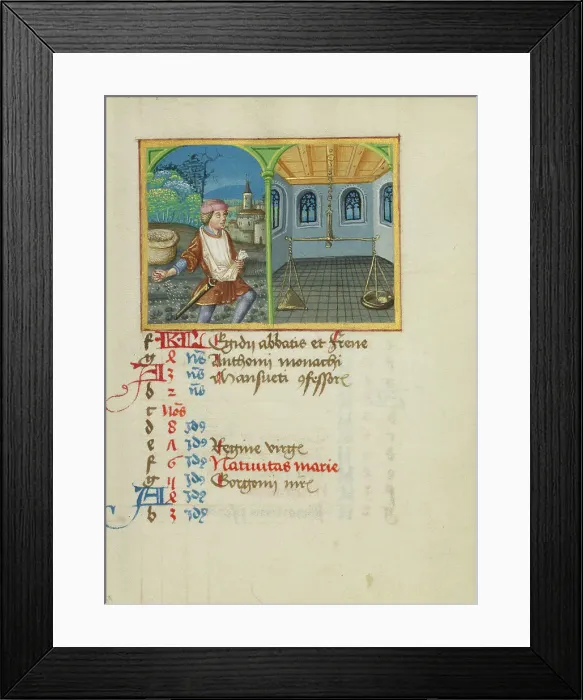 f KL Egidij abbatis et Frene
g 8 nōs Anthoni monachi
A 3 nōs Mansueti 9fessore
b 2 nōs
c nōs
d 8 idꝰ
e Λ idꝰ Regine virgis
f 6 idꝰ Natiuitas marie
g 4 idꝰ Gorgoni mrs
A 8 idꝰ
b 3 idꝰ